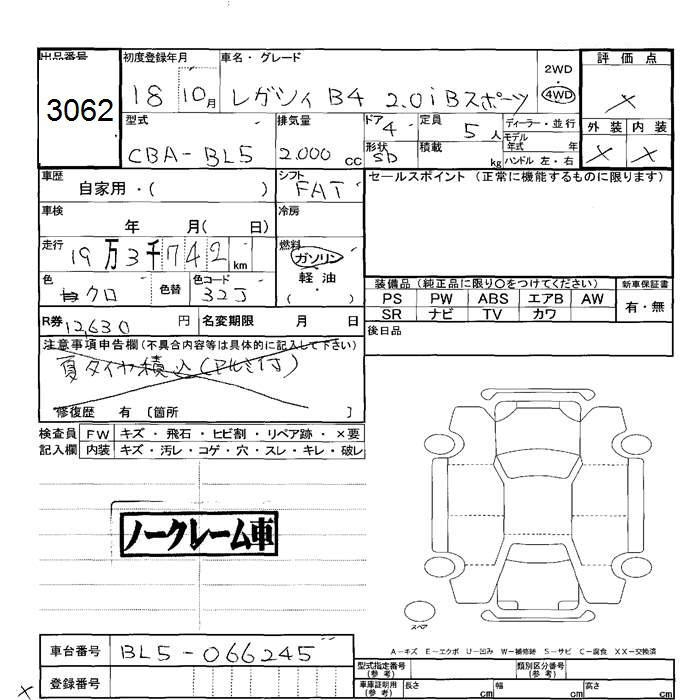 出品番号 初度登録年月 車名・グレード 2WD 評価点
3062 18 10月 レガシィ B4 2.0i Bスポーツ 4WD
型式 排気量 ドア 4 定員 5人 ディーラー・並行 外装 内装
CBA-BL5 2.000cc 形状 SD 積載 kg モデル年式 年
ハンドル 左・右
車歴 自家用・( ) シフト FAT セールスポイント (正常に機能するものに限ります)
車検 年 月( 日) 冷房
走行 19万3千742km 燃料 ガソリン
軽油
( ・ )
色 クロ 色替 色コード 32J
装備品 (純正品に限り○をつけてください) 新車保証書
PS PW ABS エアB AW 有・無
SR ナビ TV カワ
R券 12,630円 名変期限 月 日 後日品
注意事項申告欄(不具合内容等は具体的に記入して下さい)
夏タイヤ積込(アルミ付)
修復歴 有 〔箇所 〕
検査員 FW キズ・飛石・ヒビ割・リペア跡・×要
記入欄 内装 キズ・汚レ・コゲ・穴・スレ・キレ・破レ
ノークレーム車
スペア
A-キズ E-エクボ U-凹み W-補修跡 S-サビ C-腐食 XX-交換済
車台番号 BL5-066245
登録番号
型式指定番号(参考) 類別区分番号(参考)
車庫証明用(参考) 長さ cm 幅 cm 高さ cm